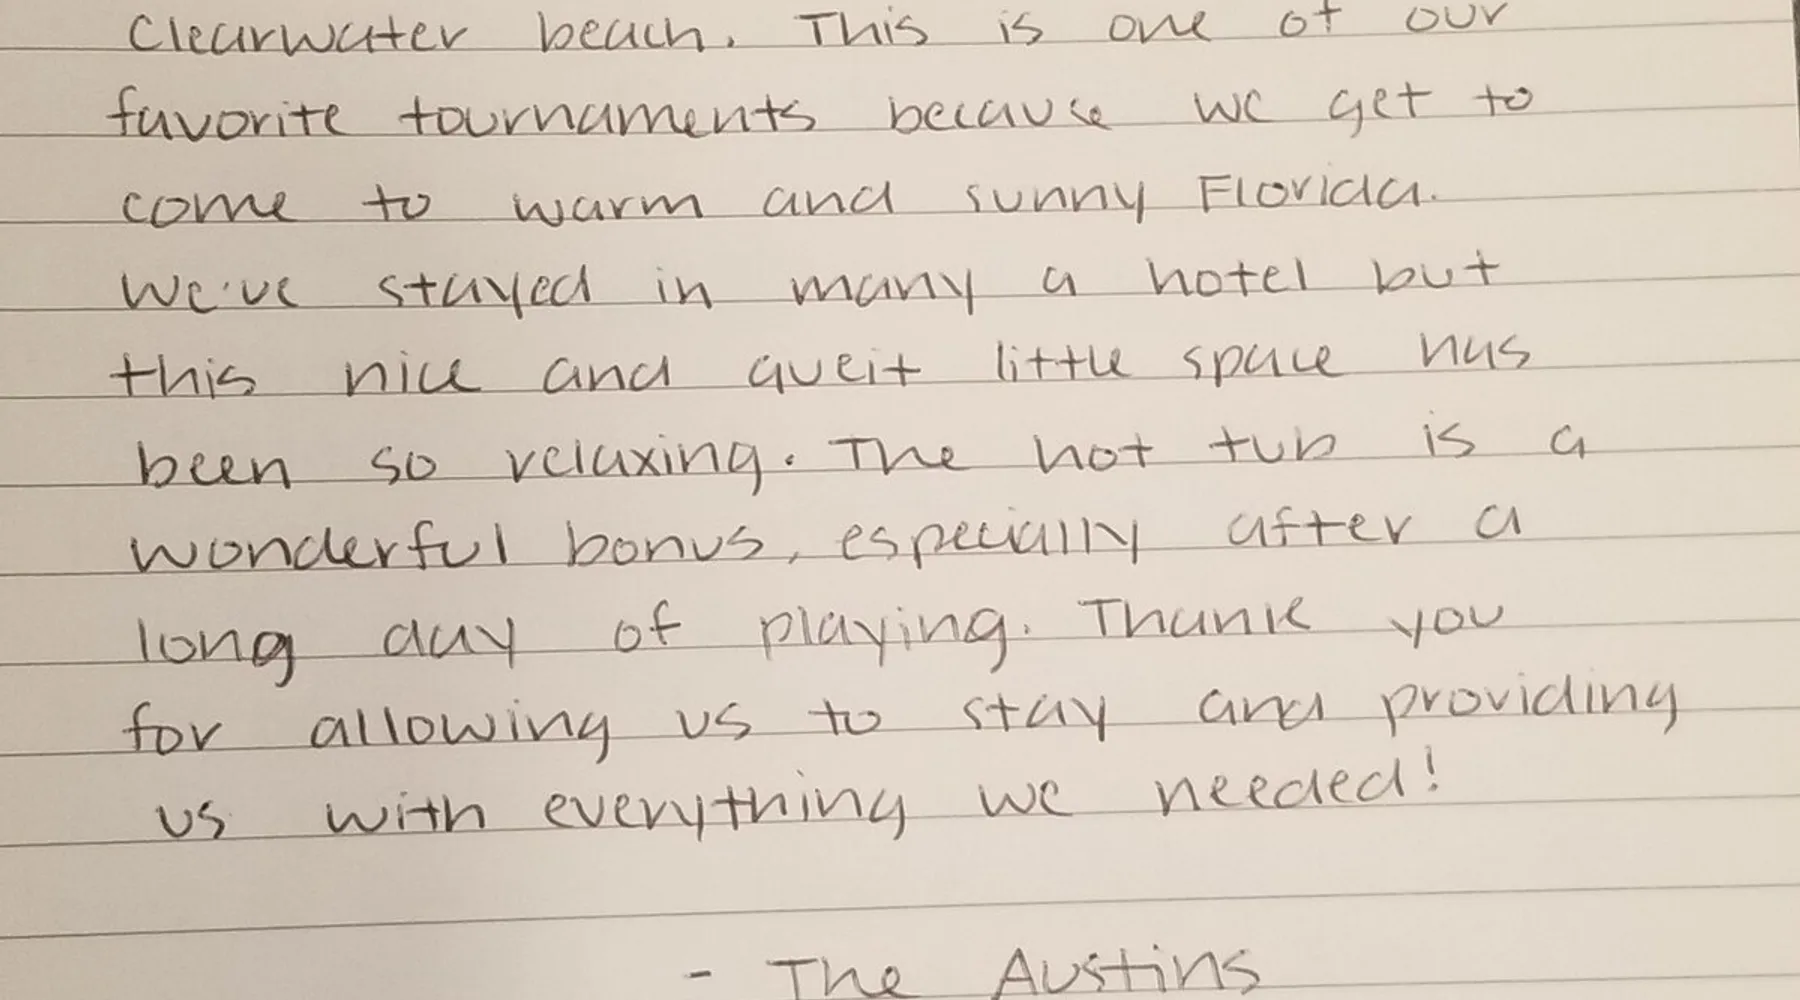 Clearwater beach. This is one of our
favorite tournaments because we get to
come to warm and sunny Florida.
We've stayed in many a hotel but
this nice and queit little space has
been so relaxing. The hot tub is a
wonderful bonus, especially after a
long day of playing. Thank you
for allowing us to stay and providing
us with everything we needed!
- The Austins